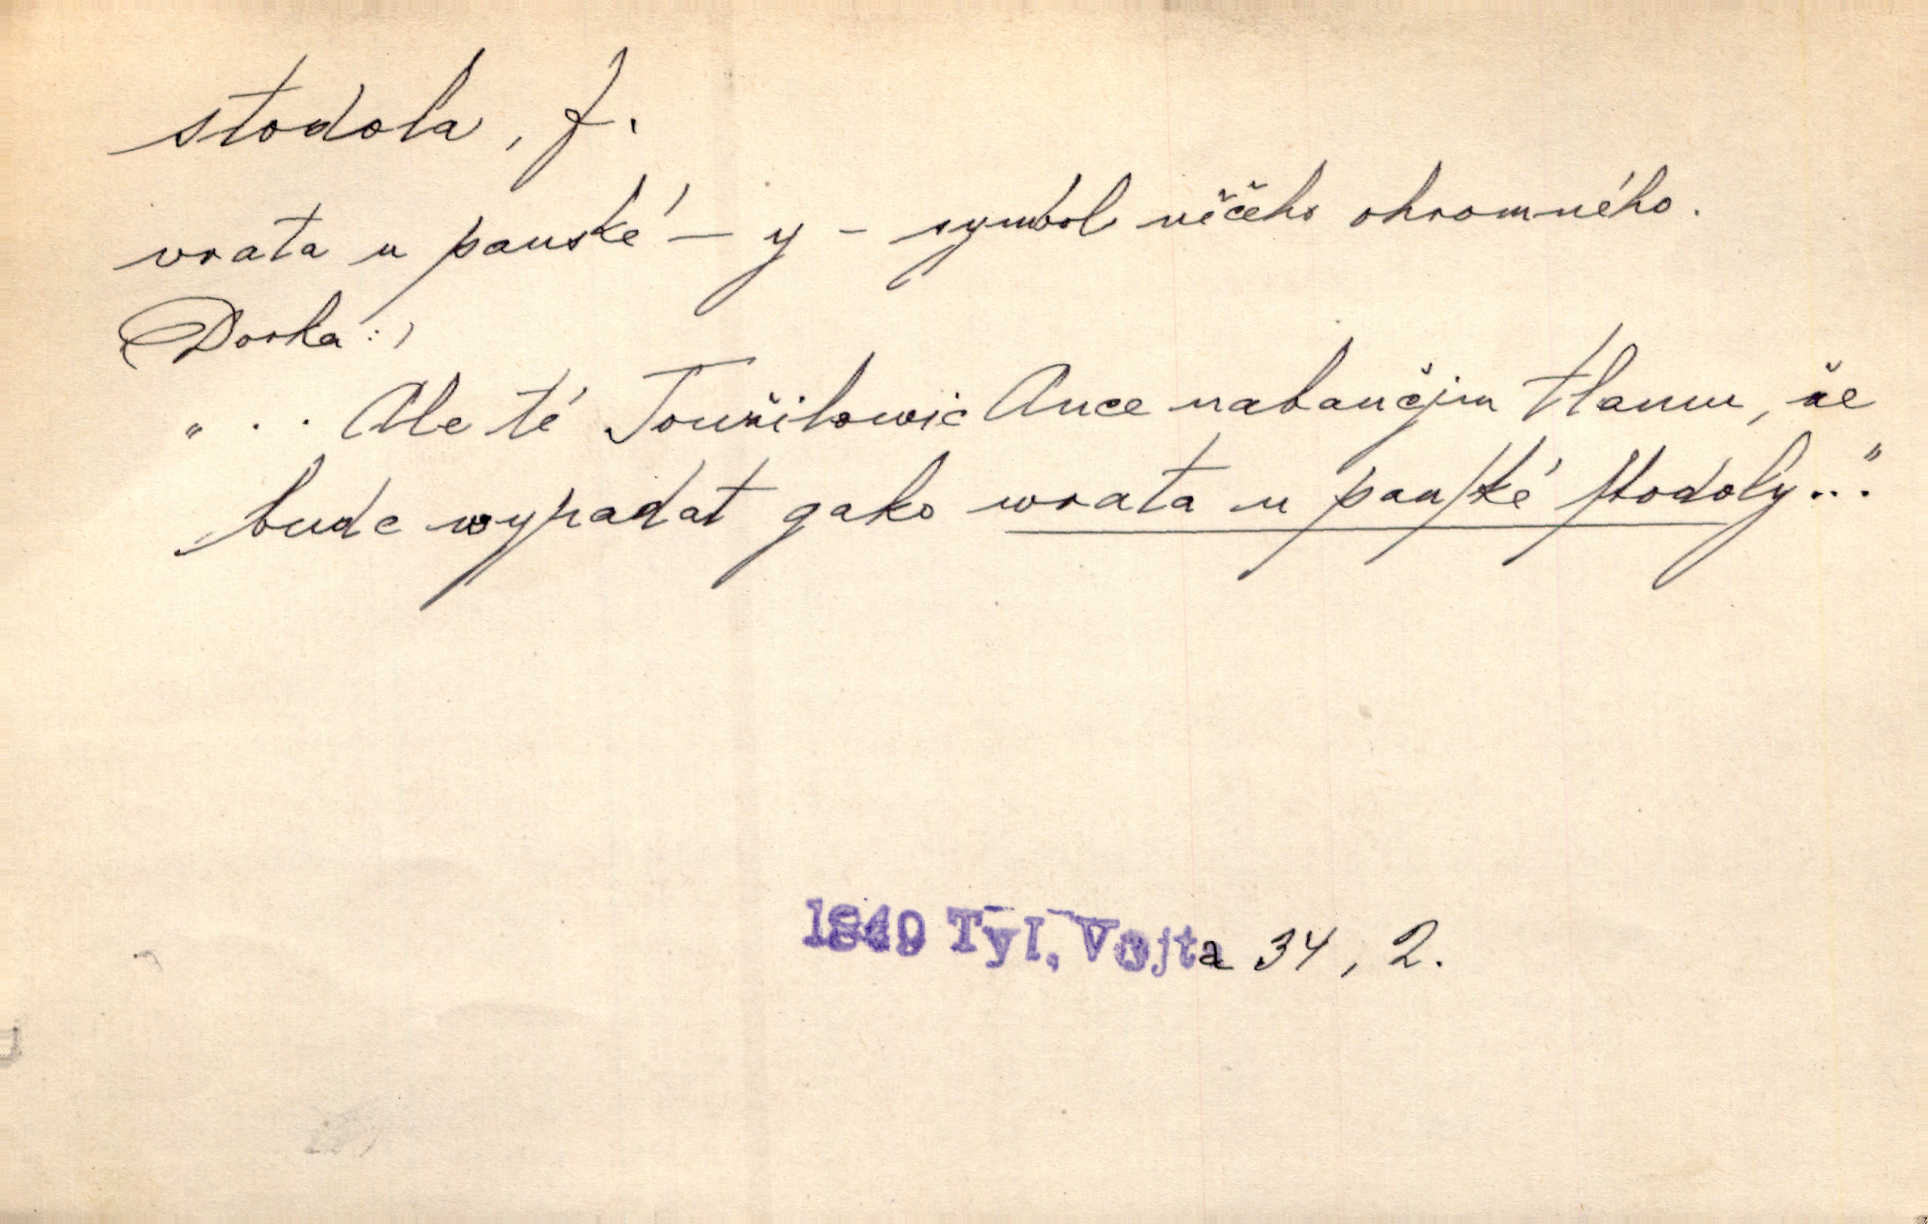 stodola, f.
vrata u panské – y – symbol něčeho ohromného.
(Dorka:)
„ . . Ale té Toužilowic Ance nabančjm tlamu, že
bude wypadat gako wrata u panſké ſtodoly..."
1849 Tyl, Vojta 34, 2.